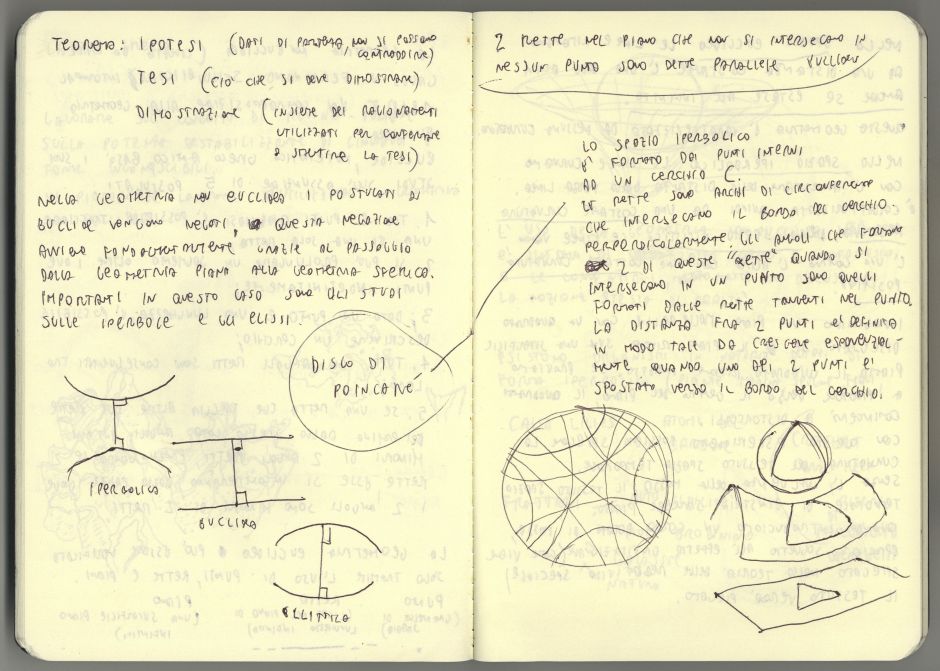 TEOREMA: IPOTESI (DATI DI PARTENZA, NON SI POSSONO
CONTRADDIRE)
TESI (CIO' CHE SI DEVE DIMOSTRARE)
DIMOSTRAZIONE (INSIEME DEI RAGIONAMENTI
UTILIZZATI PER CONFERMARE
O SMENTIRE LA TESI)
NELLA GEOMETRIA NON EUCLIDEA I POSTULATI DI
EUCLIDE VENGONO NEGATI, QUESTA NEGAZIONE
AVVIENE FONDAMENTALMENTE GRAZIE AL PASSAGGIO
DALLA GEOMETRIA PIANA ALLA GEOMETRIA SFERICA.
IMPORTANTI IN QUESTO CASO SONO GLI STUDI
SULLE IPERBOLE E GLI ELISSI.
DISCO DI
POINCARE'
IPERBOLICA
EUCLIDEA
ELLITTICA
2 RETTE NEL PIANO CHE NON SI INTERSECANO IN
NESSUN PUNTO SONO DETTE PARALLELE
LO SPAZIO IPERBOLICO
E' FORMATO DAI PUNTI INTERNI
AD UN CERCHIO C.
LE RETTE SONO ARCHI DI CIRCONFERENZE
CHE INTERSECANO IL BORDO DEL CERCHIO.
PERPENDICOLARMENTE. GLI ANGOLI CHE FORMANO
2 DI QUESTE "RETTE" QUANDO SI
INTERSECANO IN UN PUNTO SONO QUELLI
FORMATI DALLE RETTE TANGENTI NEL PUNTO.
LA DISTANZA FRA 2 PUNTI E' DEFINITA
IN MODO TALE DA CRESCERE ESPONENZIAL-
MENTE QUANDO UNO DEI 2 PUNTI E'
SPOSTATO VERSO IL BORDO DEL CERCHIO.